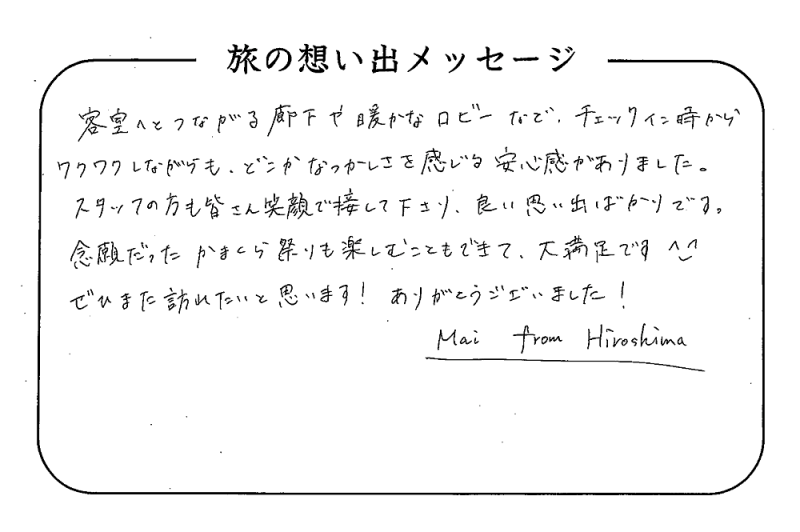 旅の想い出メッセージ
客室へとつながる廊下や暖かなロビーなど、チェックイン時から
ワクワクしながらも、どこかなつかしさを感じる安心感がありました。
スタッフの方も皆さん笑顔で接して下さり、良い思い出ばかりです。
念願だったかまくら祭りも楽しむこともできて、大満足です ^‿^
ぜひまた訪れたいと思います！ ありがとうございました！
Mai from Hiroshima